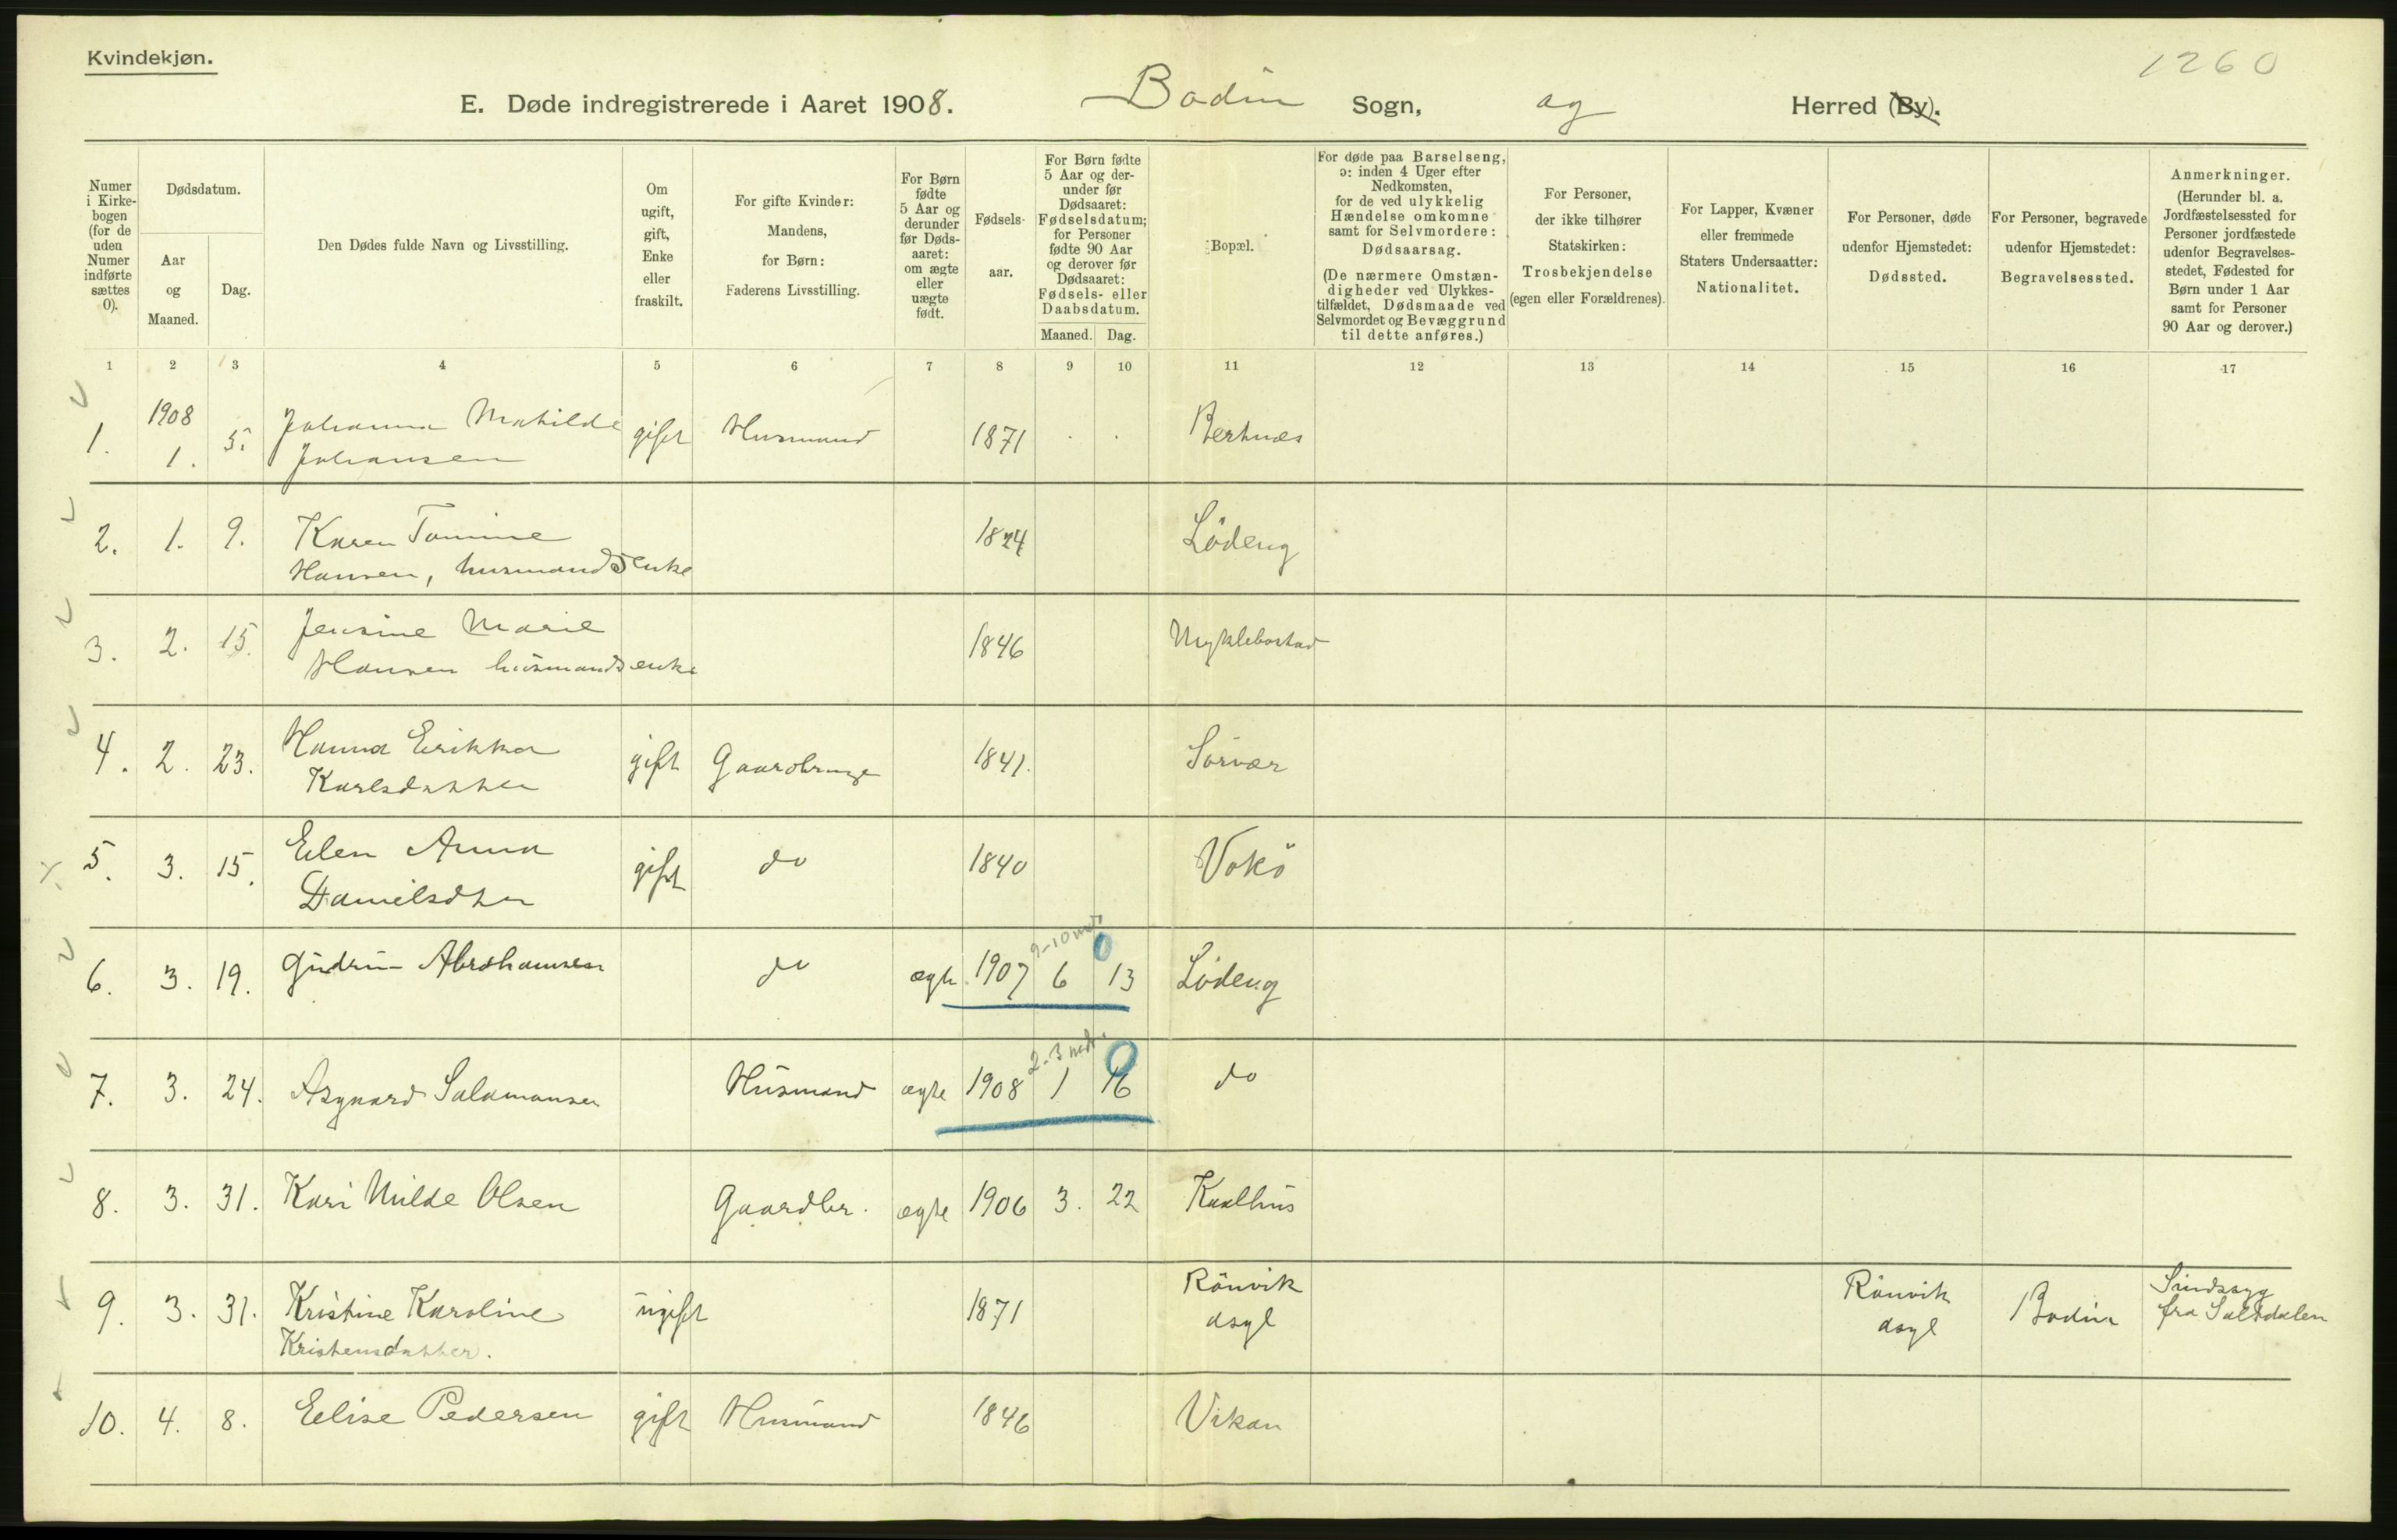 Kvindekjøn.
1260
E. Døde indregistrerede i Aaret 1908. Bodin Sogn, og Herred (By).
Numer i Kirke-bogen (for de uden Numer indførte sættes 0).
Dødsdatum.
Aar og Maaned.
Dag.
Den Dødes fulde Navn og Livsstilling.
Om ugift, gift, Enke eller fraskilt.
For gifte Kvinder: Mandens, for Børn: Faderens Livsstilling.
For Børn fødte 5 Aar og derunder før Døds-aaret: om ægte eller uægte født.
Fødsels-aar.
For Børn fødte 5 Aar og der-under før Dødsaaret: Fødselsdatum; for Personer fødte 90 Aar og derover før Dødsaaret: Fødsels- eller Daabsdatum.
Maaned. Dag.
Bopæl.
For døde paa Barselseng, ɔ: inden 4 Uger efter Nedkomsten, for de ved ulykkelig Hændelse omkomne samt for Selvmordere: Dødsaarsag. (De nærmere Omstæn-digheder ved Ulykkes-tilfældet, Dødsmaade ved Selvmordet og Bevæggrund til dette anføres.)
For Personer, der ikke tilhører Statskirken: Trosbekjendelse (egen eller Forældrenes).
For Lapper, Kvæner eller fremmede Staters Undersaatter: Nationalitet.
For Personer, døde udenfor Hjemstedet: Dødssted.
For Personer, begravede udenfor Hjemstedet: Begravelsessted.
Anmerkninger. (Herunder bl. a. Jordfæstelsessted for Personer jordfæstede udenfor Begravelses-stedet, Fødested for Børn under 1 Aar samt for Personer 90 Aar og derover.)
1 2 3 4 5 6 7 8 9 10 11 12 13 14 15 16 17
1908
1. 1. 5. Johanna Matilde gift Husmand 1871 Bertnes
Johansen
2. 1. 9. Karen Tomine 1824 Löding
Hansen, husmandsenke
3. 2. 15. Jensine Marie 1846 Myklebostad
Hansen husmandsenke
4. 2. 23. Hanna Erikka gift Gaardbruger 1841. Sörvær
Karlsdatter
5. 3. 15. Elen Anna gift do 1840
Danielsdtr
9-10 mdr 0
6. 3. 19. Gudrun Abrahamsen do ægte 1907 6 13 Löding
2-3 mdr. 0
7. 3. 24. Asgnard Salamonsen Husmand ægte 1908 1 16 do
8. 3. 31. Kari Milde Olsen Gaardbr. ægte 1906 3. 22 Kvalhus
9. 3. 31. Kristine Karoline ugift 1871 Rönvik asyl Rönvik asyl Bodin Sindssyg fra Saltdalen
Kristensdatter.
10. 4. 8. Elise Pedersen gift Husmand 1846 Vikan